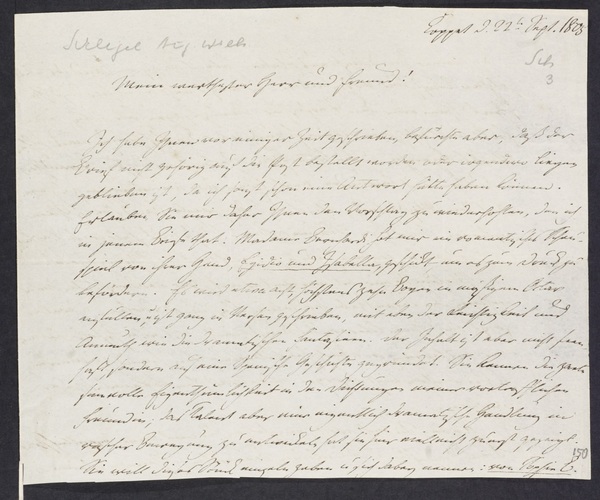 Schlegel Aug. Wilh.
Coppet d. 22ten Sept. 1808
Sch
3
Mein werthester Herr und Freund!
Ich habe Ihnen vor einiger Zeit geschrieben, befürchte aber, daß der
Brief nicht gehörig auf die Post bestellt worden oder irgendwo liegen
geblieben ist, da ich sonst schon eine Antwort hätte haben können.
Erlauben Sie mir daher Ihnen den Vorschlag zu wiederhohlen, den ich
in jenem Briefe that. Madame Bernhardi hat mir ein romantisches Schau-
spiel von ihrer Hand, Egidio und Isabella, geschickt, um es zum Druck zu
befördern. Es wird etwa acht, höchstens zehn Bogen in mäßigem Octav
anfüllen, ist ganz in Versen geschrieben, mit eben der Leichtigkeit und
Anmuth wie die dramatischen Fantasieen. Der Inhalt ist aber nicht
sondern auf eine Spanische Geschichte gegründet. Sie kennen die
sinnvolle Eigenthümlichkeit in den Dichtungen meiner vortrefflichen
Freundin; das Talent aber eine eigentlich dramatische Handlung in
rascher Bewegung zu entwickeln hat sie hier vielleicht zuerst gezeigt.
Sie will dieses Stück einzeln haben und sich dabey nennen: von Sophie B.
150